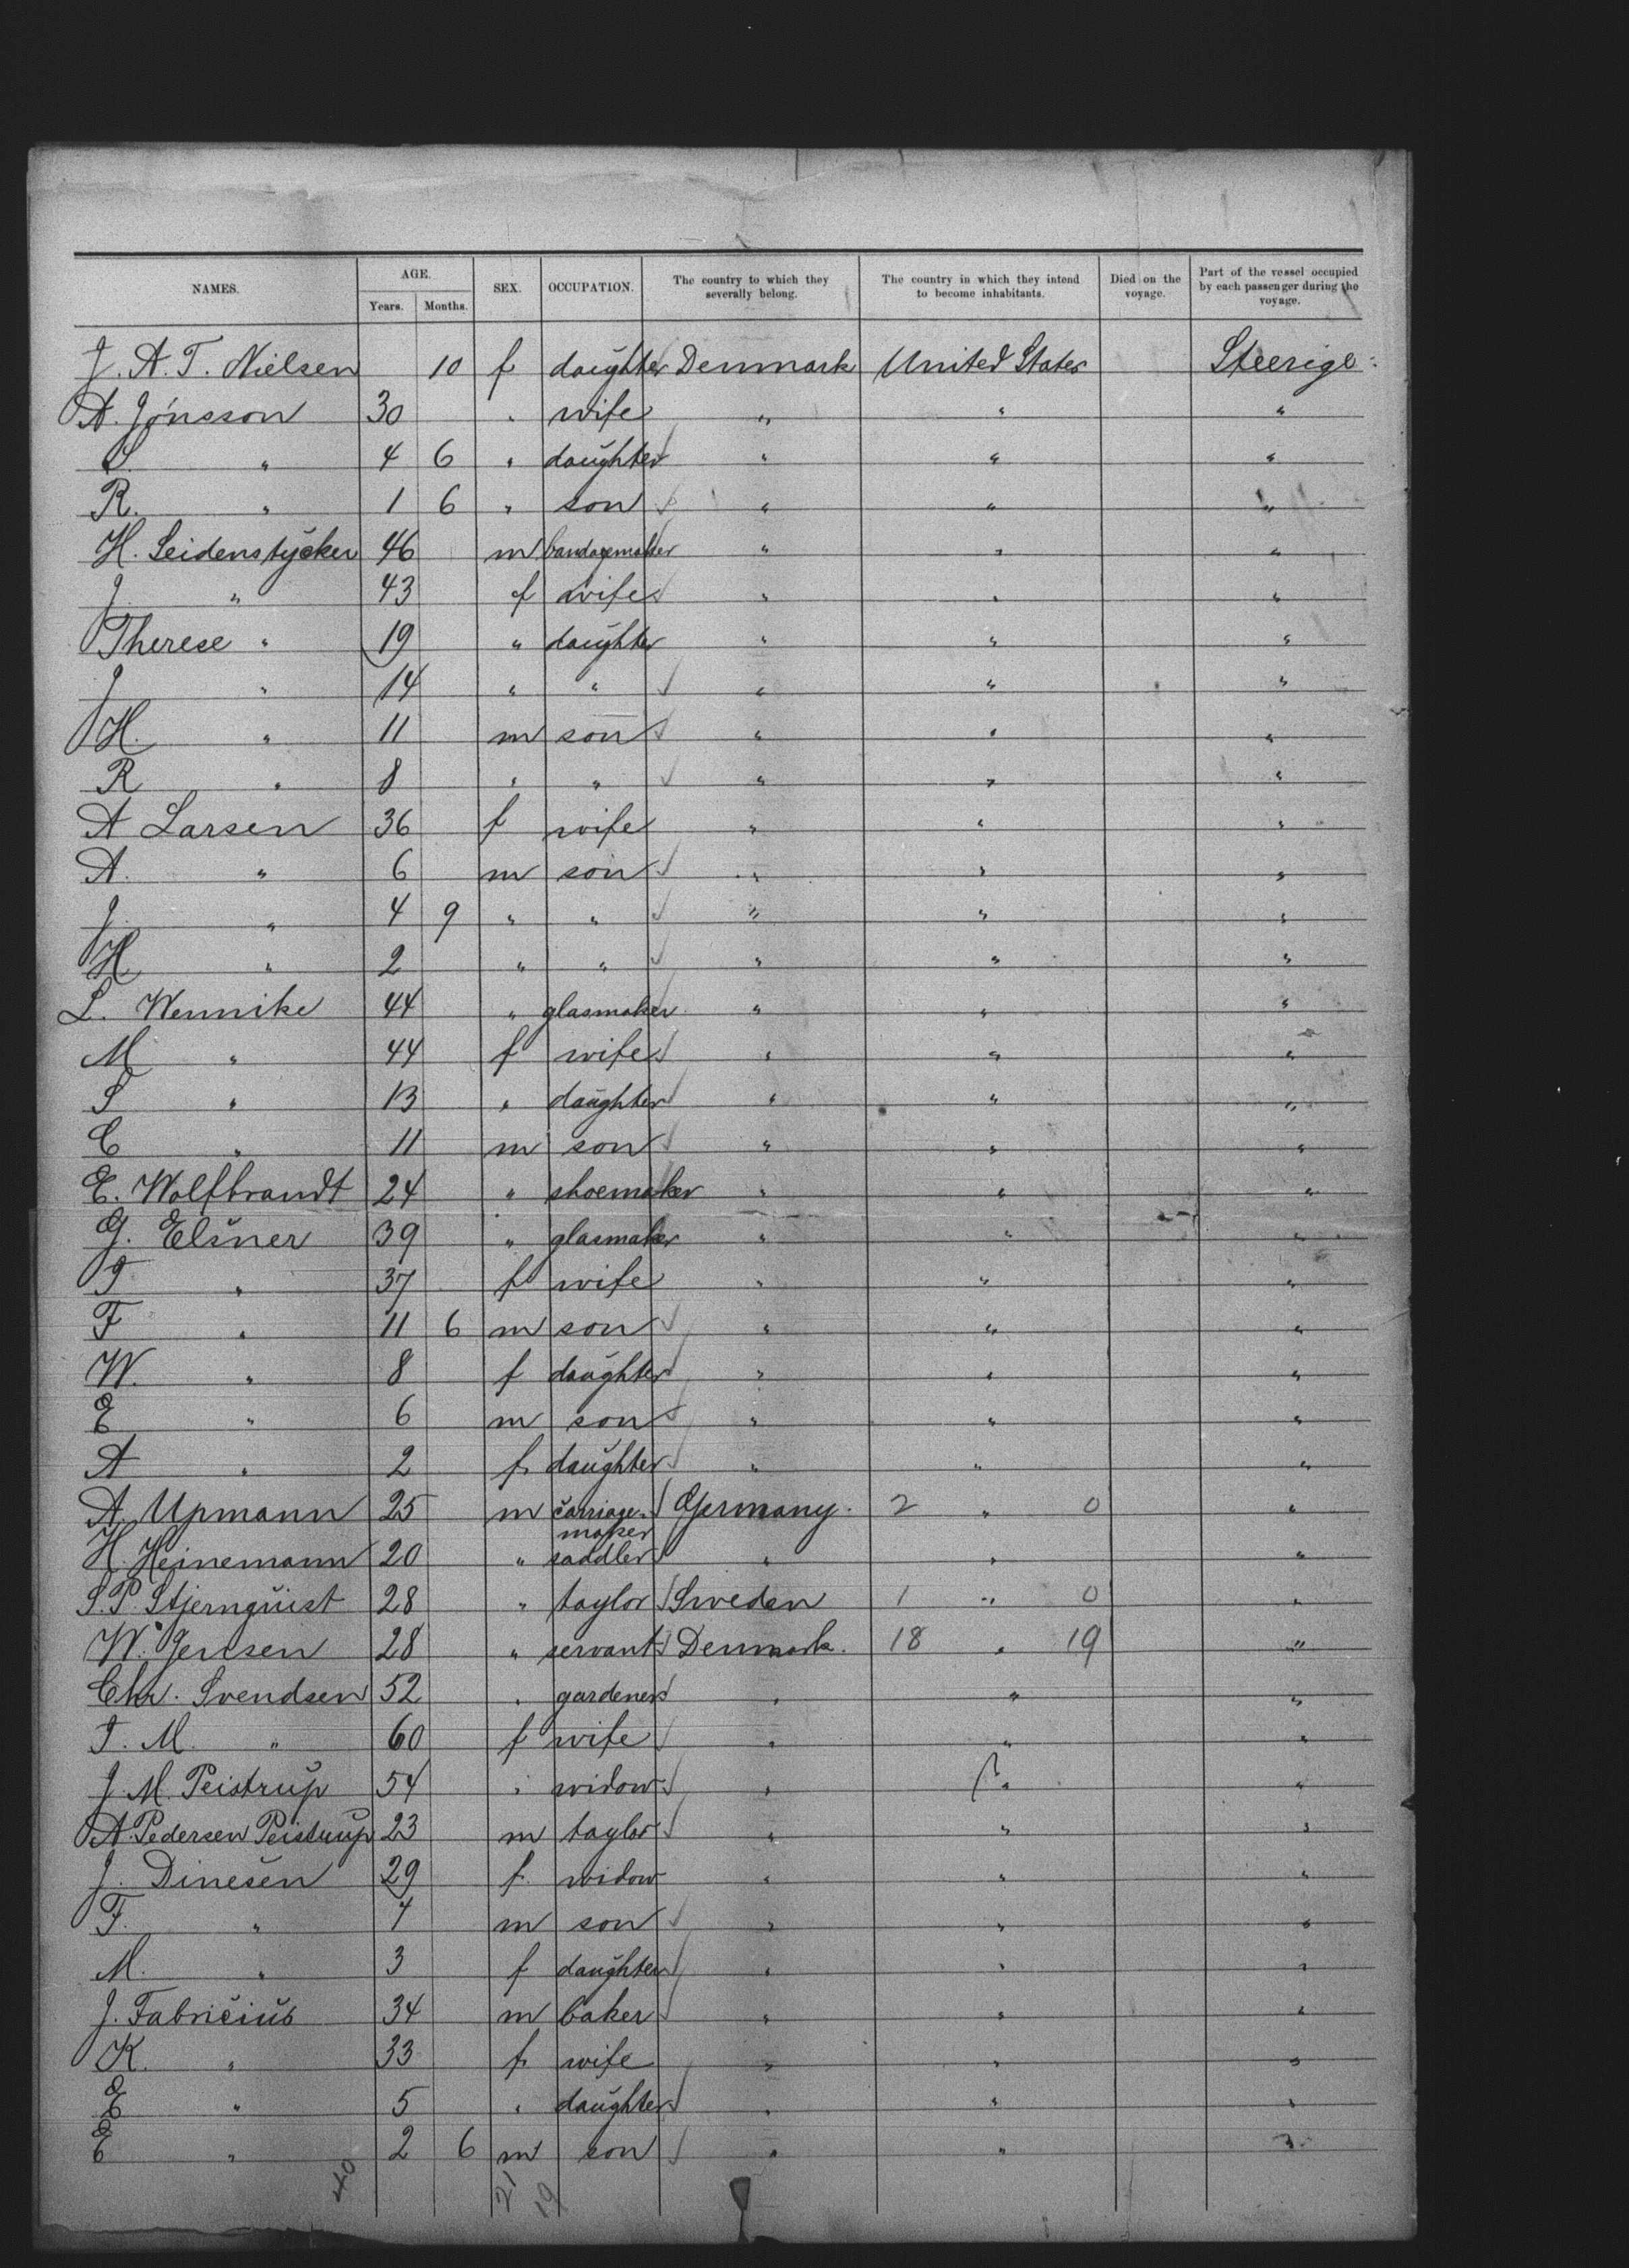 NAMES. AGE. Years. Months. SEX. OCCUPATION. The country to which they severally belong. The country in which they intend to become inhabitants. Died on the voyage. Part of the vessel occupied by each passenger during the voyage.
J. A. T. Nielsen 10 f daughter Denmark United States Steerige
A. Jónsson 30 " wife " " "
S. " 4 6 " daughter " " "
R. " 1 6 " son " " "
H. Seidenstycker 46 m bandagemaker " " "
J " 43 f wife " " "
Therese " 19 " daughter " " "
J " 14 " " " " "
H. " 11 m son " " "
R " 8 " " " " "
A Larsen 36 f wife " " "
A. " 6 m son " " "
J " 4 9 " " " " "
H " 2 " " " " "
L. Wennike 44 " glasmaker " " "
M " 44 f wife " " "
S " 13 " daughter " " "
C " 11 m son " " "
E. Wolfbrandt 24 " shoemaker " " "
G. Elsner 39 " glasmaker " " "
T " 37 f wife " " "
F " 11 6 m son " " "
W. " 8 f daughter " " "
E " 6 m son " " "
A " 2 f daughter " " "
A. Upmann 25 m carriage- Germany. 2 " 0 "
maker
H. Heinemann 20 " saddler " " "
S. P. Stjernquist 28 " taylor Sweden 1 " 0 "
W. Jensen 28 " servant Denmark. 18 " 19 "
Chr. Svendsen 52 " gardener " " "
T. M. " 60 f wife " " "
J. M. Peistrup 54 " widow " " "
A. Pedersen Peistrup 23 m taylor " " "
J. Dinesen 29 f. widow " " "
F. " 7 m son " " "
M. " 3 f daughter " " "
J. Fabricius 34 m baker " " "
K. " 33 f. wife " " "
E " 5 " daughter " " "
E " 2 6 m son " " "
40 21 19